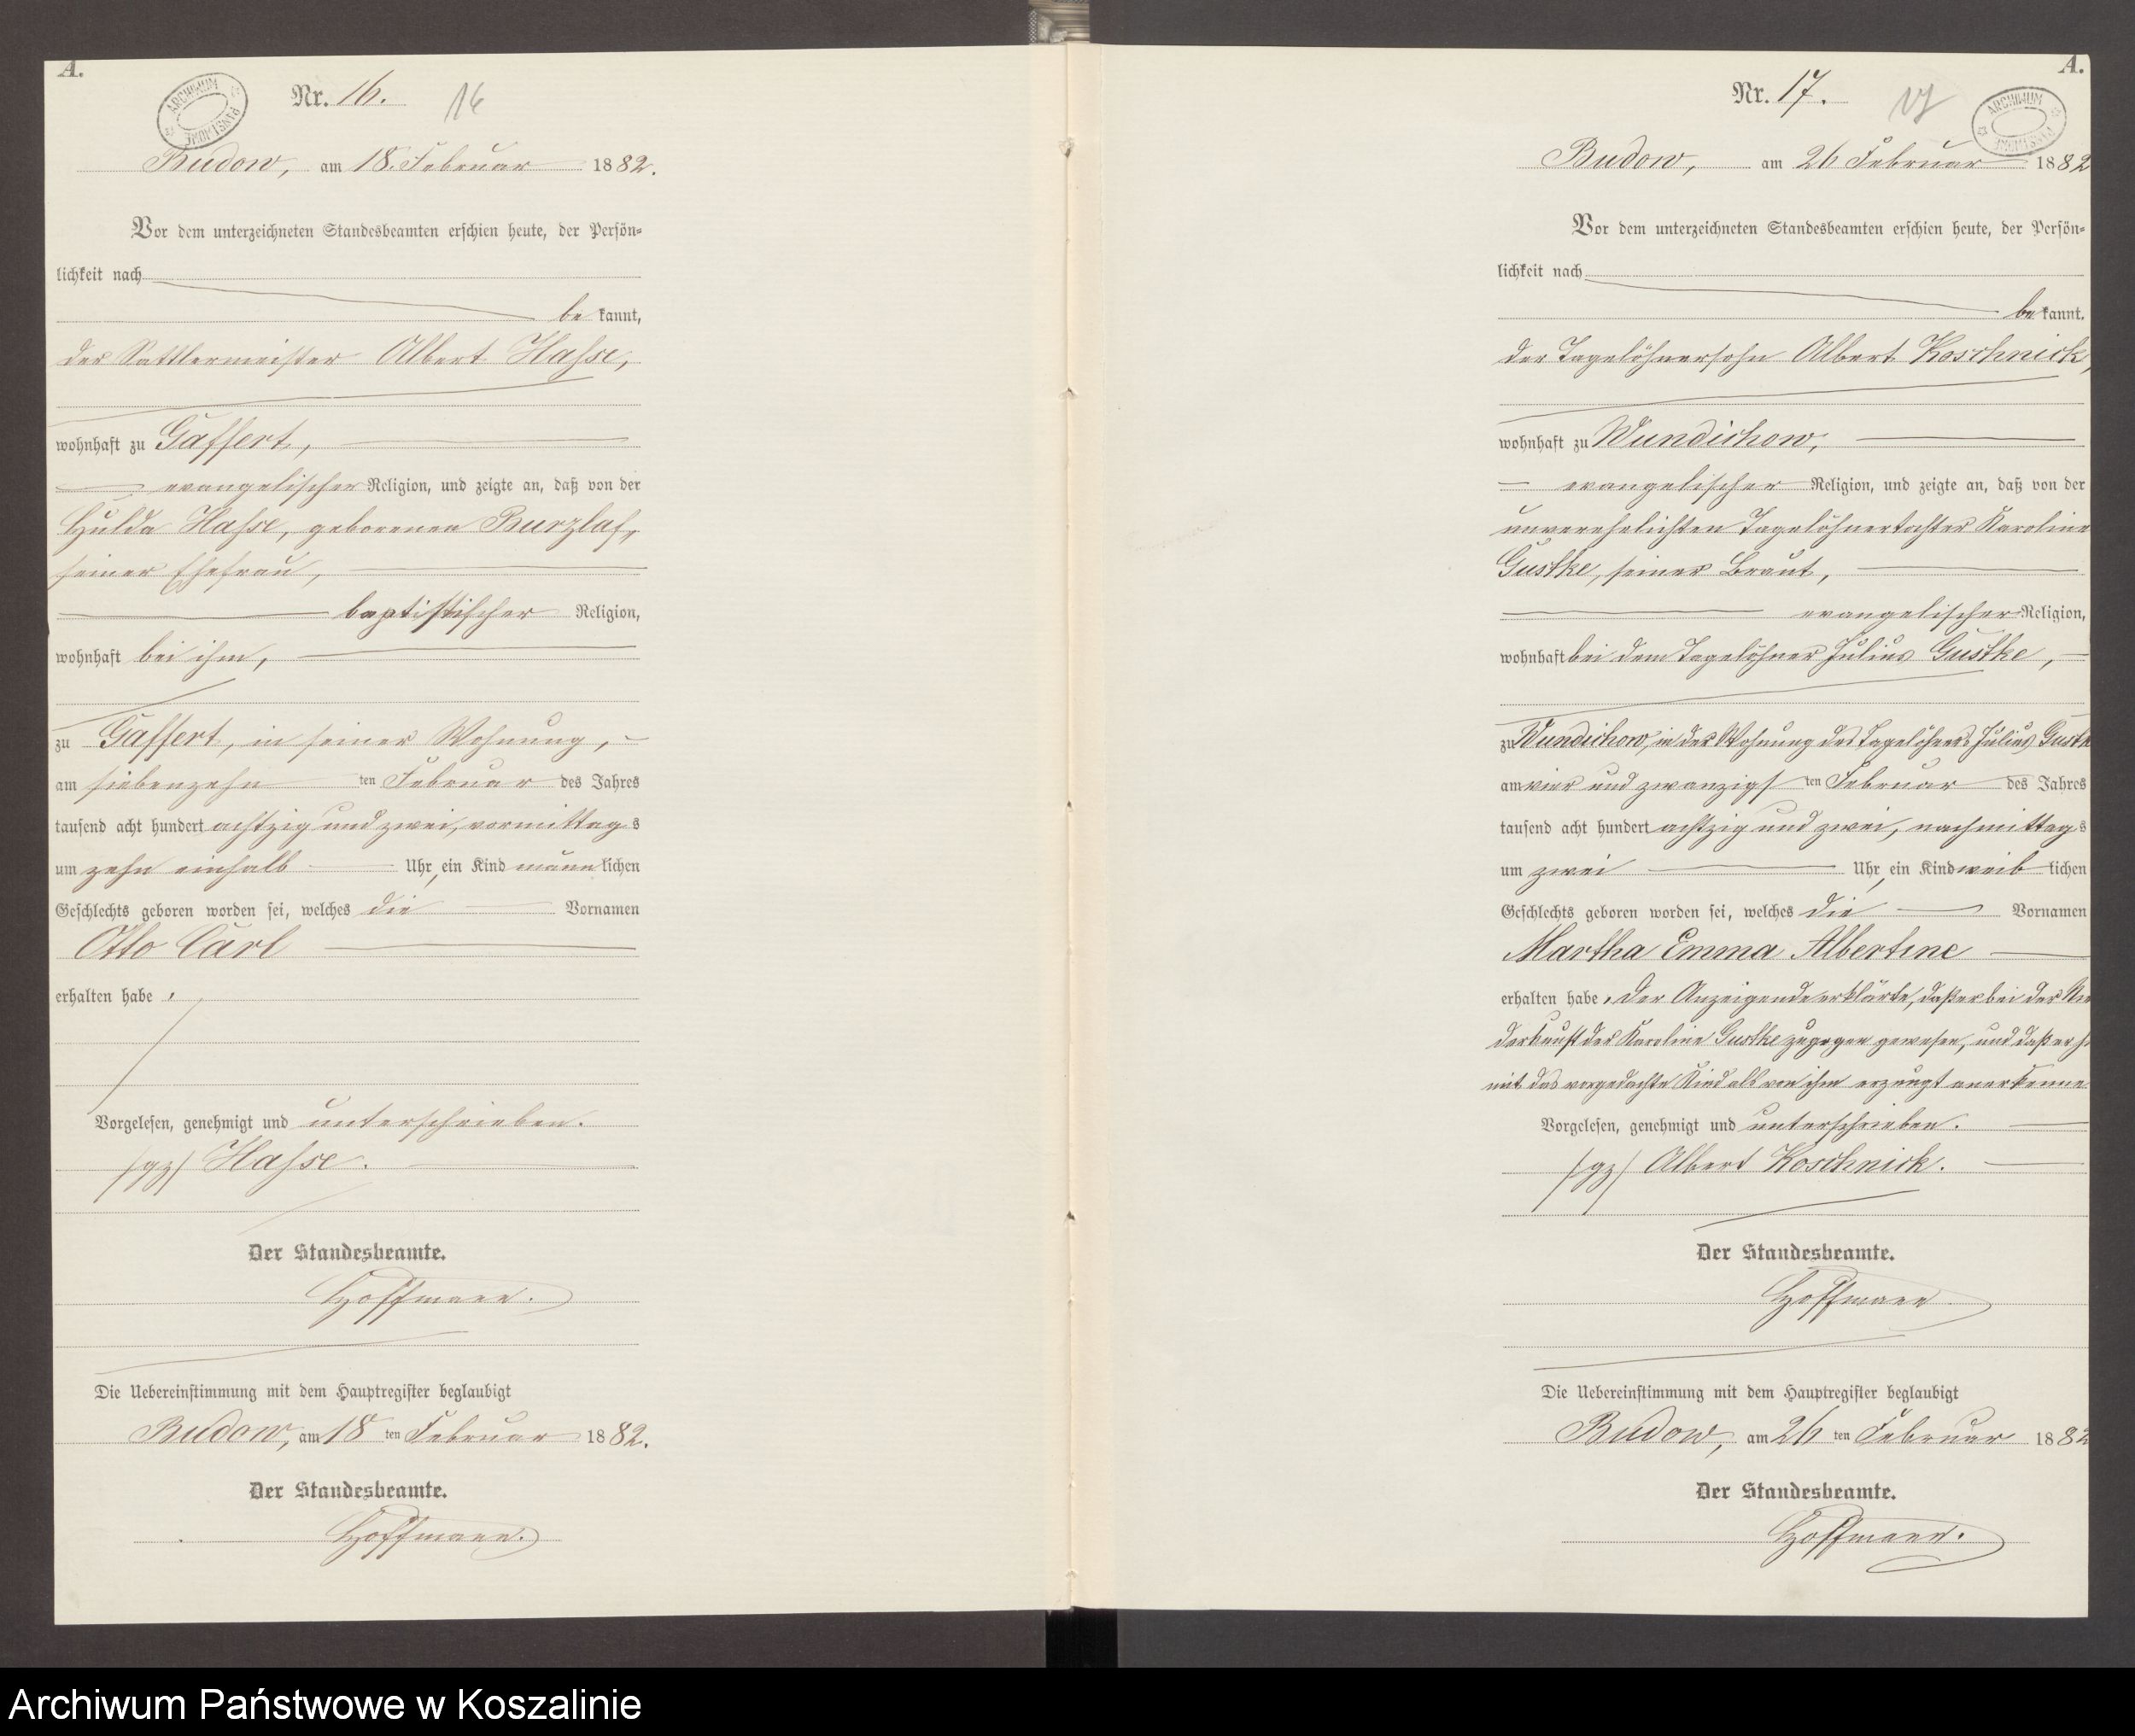 A.
ARCHIWUM PAŃSTWOWE
Nr. 16. 16
Budow, am 18. Februar 1882.
Vor dem unterzeichneten Standesbeamten erschien heute, der Persön-
lichkeit nach
be kannt,
der Sattlermeister Albert Hasse,
wohnhaft zu Gaffert,
evangelischer Religion, und zeigte an, daß von der
Hulda Hasse, geborenen Burzlaf,
seiner Ehefrau,
baptistischer Religion,
wohnhaft bei ihm,
zu Gaffert, in seiner Wohnung,
am siebenzehn ten Februar des Jahres
tausend acht hundert achtzig und zwei, vormittag s
um zehn einhalb Uhr, ein Kind männ lichen
Geschlechts geboren worden sei, welches die Vornamen
Otto Carl
erhalten habe.
Vorgelesen, genehmigt und unterschrieben.
/gz/ Hasse.
Der Standesbeamte.
Hoffmann.
Die Uebereinstimmung mit dem Hauptregister beglaubigt
Budow, am 18 ten Februar 1882.
Der Standesbeamte.
Hoffmann.
A.
ARCHIWUM PAŃSTWOWE
Nr. 17. 17
Budow, am 26 Februar 1882
Vor dem unterzeichneten Standesbeamten erschien heute, der Persön-
lichkeit nach
be kannt.
der Tagelöhnersohn Albert Koschnick,
wohnhaft zu Wundichow,
evangelischer Religion, und zeigte an, daß von der
unverehelichten Tagelöhnertochter Karoline
Gustke, seiner Braut,
evangelischer Religion,
wohnhaft bei dem Tagelöhner Julius Gustke,
zu Wundichow, in der Wohnung des Tagelöhners Julius Gustk
am vier und zwanzigs ten Februar des Jahres
tausend acht hundert achtzig und zwei, nachmittag s
um zwei Uhr, ein Kind weib lichen
Geschlechts geboren worden sei, welches die Vornamen
Martha Emma Albertine
erhalten habe. Der Anzeigende erklärte, daß er bei der Nie
derkunft der Karoline Gustke zugegen gewesen, und daß er hi
mit das vorgedachte Kind als von ihm erzeugt anerkenne
Vorgelesen, genehmigt und unterschrieben.
/gz/ Albert Koschnick.
Der Standesbeamte.
Hoffmann
Die Uebereinstimmung mit dem Hauptregister beglaubigt
Budow, am 26 ten Februar 1882
Der Standesbeamte.
Hoffmann.
Archiwum Państwowe w Koszalinie